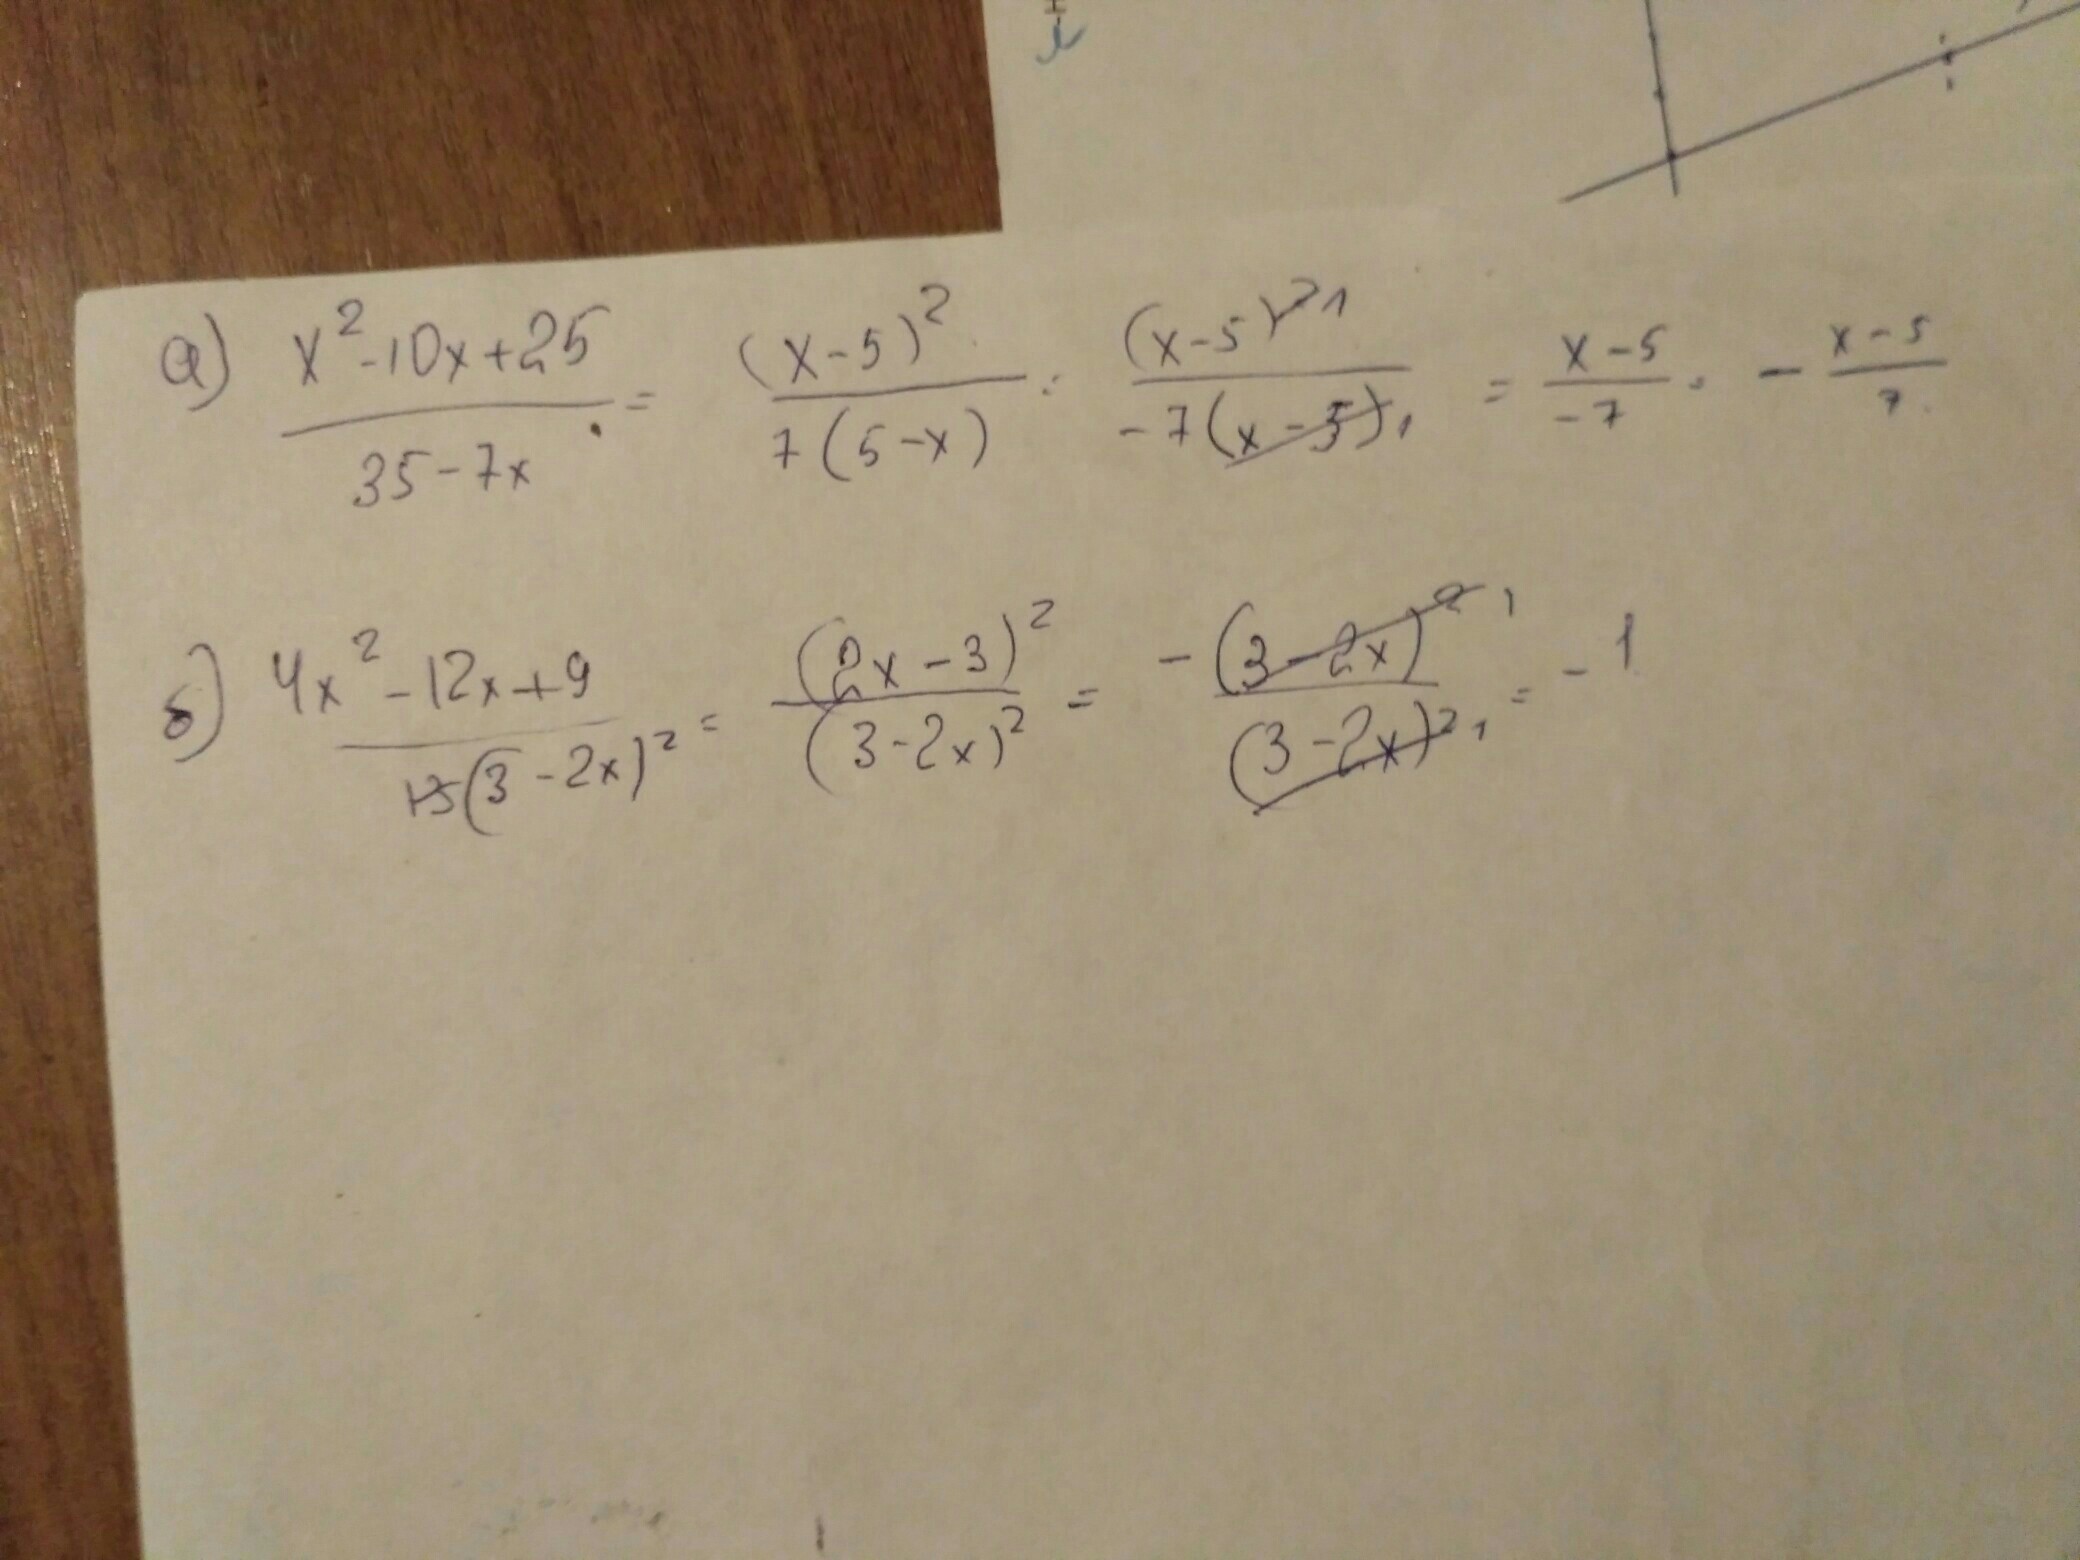 а) (x²-10x+25)/(35-7x) = (x-5)²/(7(5-x)) = (x-5)²¹/(-7(x-5)₁) = (x-5)/(-7) = -(x-5)/7
б) (4x²-12x+9)/((3-2x)²) = (2x-3)²/(3-2x)² = -(3-2x)²¹/(3-2x)²₁ = -1